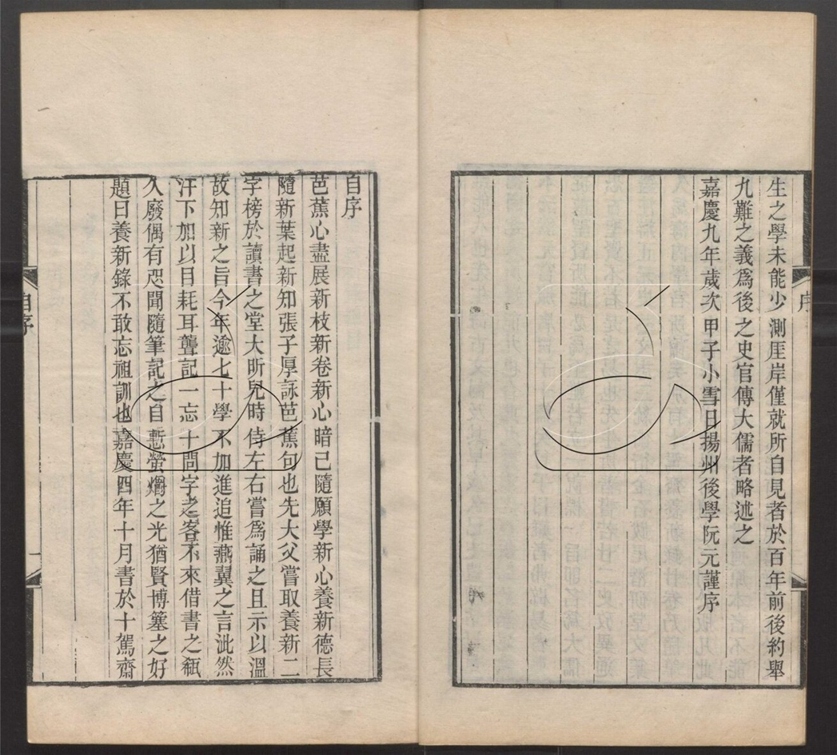 序
生之學未能少測厓岸僅就所自見者於百年前後約舉
九難之義爲後之史官傳大儒者略述之
嘉慶九年歲次甲子小雪日揚州後學阮元謹序
自序
芭蕉心盡展新枝新卷新心暗已隨願學新心養新德長
隨新葉起新知張子厚詠芭蕉句也先大父嘗取養新二
字榜於讀書之堂大昕兒時侍左右嘗爲誦之且示以溫
故知新之旨今年逾七十學不加進追惟燕翼之言泚然
汗下加以目耗耳聾記一忘十問字之客不來借書之瓻
久廢偶有咫聞隨筆記之自慙螢爝之光猶賢博簺之好
題曰養新錄不敢忘祖訓也嘉慶四年十月書於十駕齋
自序
一